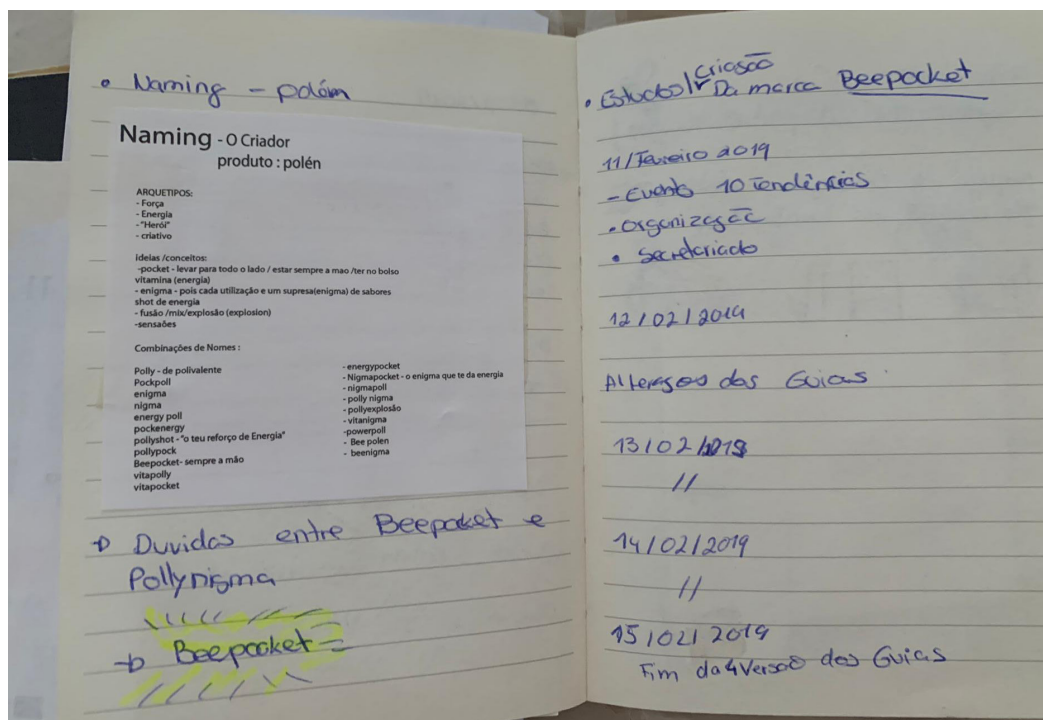 • Naming - polém
Naming - O Criador
produto : polén
ARQUETIPOS:
- Força
- Energia
- "Herói"
- criativo
Ideias /conceitos:
-pocket - levar para todo o lado / estar sempre a mao /ter no bolso
vitamina (energia)
- enigma - pois cada utilização e um supresa(enigma) de sabores
shot de energia
- fusão /mix/explosão (explosion)
-sensaões
Combinações de Nomes :
Polly - de polivalente
Pockpoll
enigma
nigma
energy poll
pockenergy
pollyshot - "o teu reforço de Energia"
pollypock
Beepocket- sempre a mão
vitapolly
vitapocket
- energypocket
- Nigmapocket - o enigma que te da energia
- nigmapoll
- polly nigma
- pollyexplosão
- vitanigma
-powerpoll
- Bee polen
- beenigma
Duvidas entre Beepocket e
Pollynigma
Beepocket
• Estudo / Criação
Da marca Beepocket
11/Fevereiro 2019
- Evento 10 Tendências
• organização
• Secretariado
12/02/2019
dos Guias
13/02/2019
//
14/02/2019
//
15/02/2019
Fim da 4 Versão dos Guias